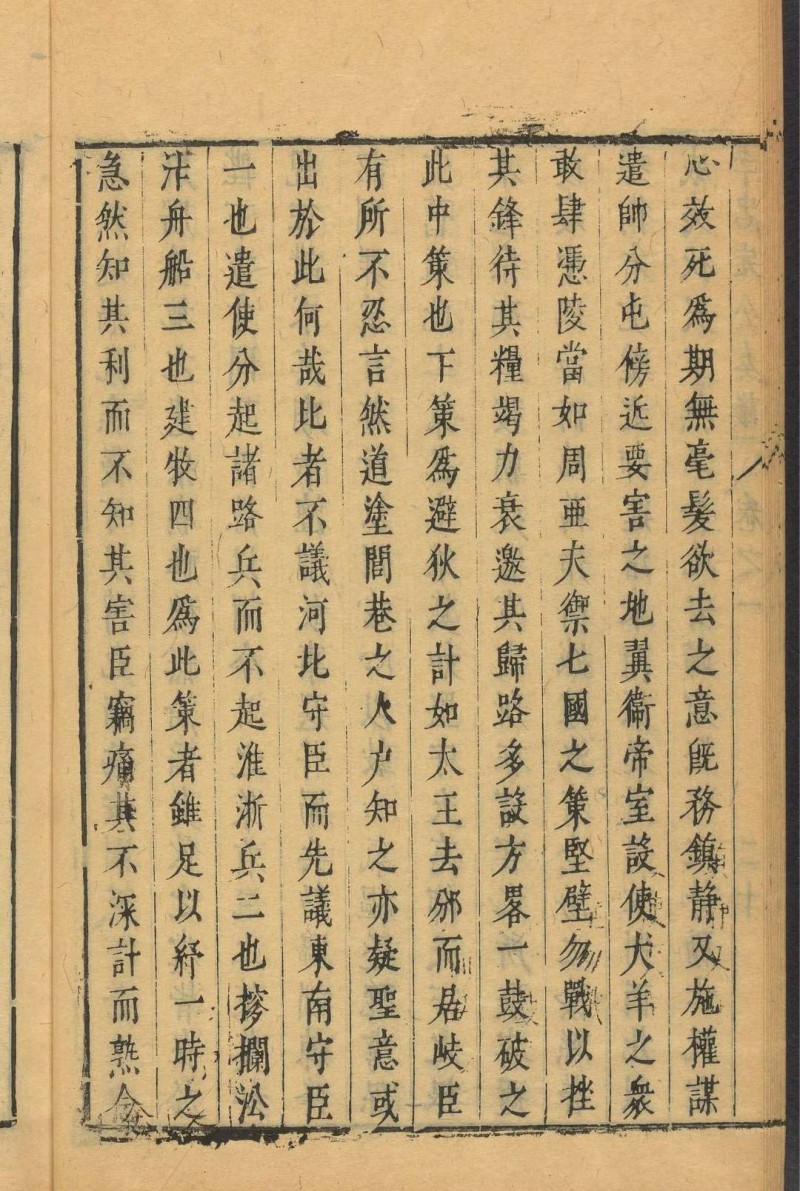 心效死爲期無毫髮欲去之意旣務鎮静又施權謀
遣帥分屯傍近要害之地翼衞帝室設使犬羊之衆
敢肆憑陵當如周亜夫禦七國之策堅壁勿戰以挫
其鋒待其糧竭力衰邀其歸路多設方畧一鼓破之
此中策也下策爲避狄之計如太王去邠而居岐臣
有所不忍言然道塗閭巷之人户知之亦疑聖意或
出於此何哉比者不議河北守臣而先議東南守臣
一也遣使分起諸路兵而不起淮浙兵二也撩攔㳂
汴舟船三也建牧四也爲此策者雖足以紓一時之
急然知其利而不知其害臣竊痛其不深計而熟